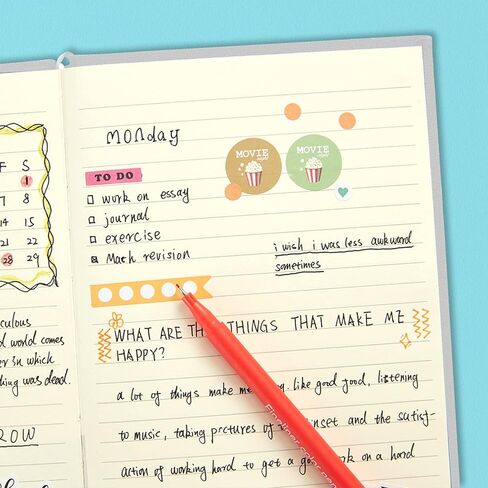 F S
1
7 8
14 15
21 22
28 29
world comes
er in which
thing was dead.
ROW
Monday
MOVIE
MOVIE
TO DO
work on essay
journal
exercise
Math revision
i wish i was less awkward
sometimes
WHAT ARE THINGS THAT MAKE ME
HAPPY?
a lot of things make me like good food, listening
to music, taking prctures of and the satisf-
action of working hard to get a on a hard